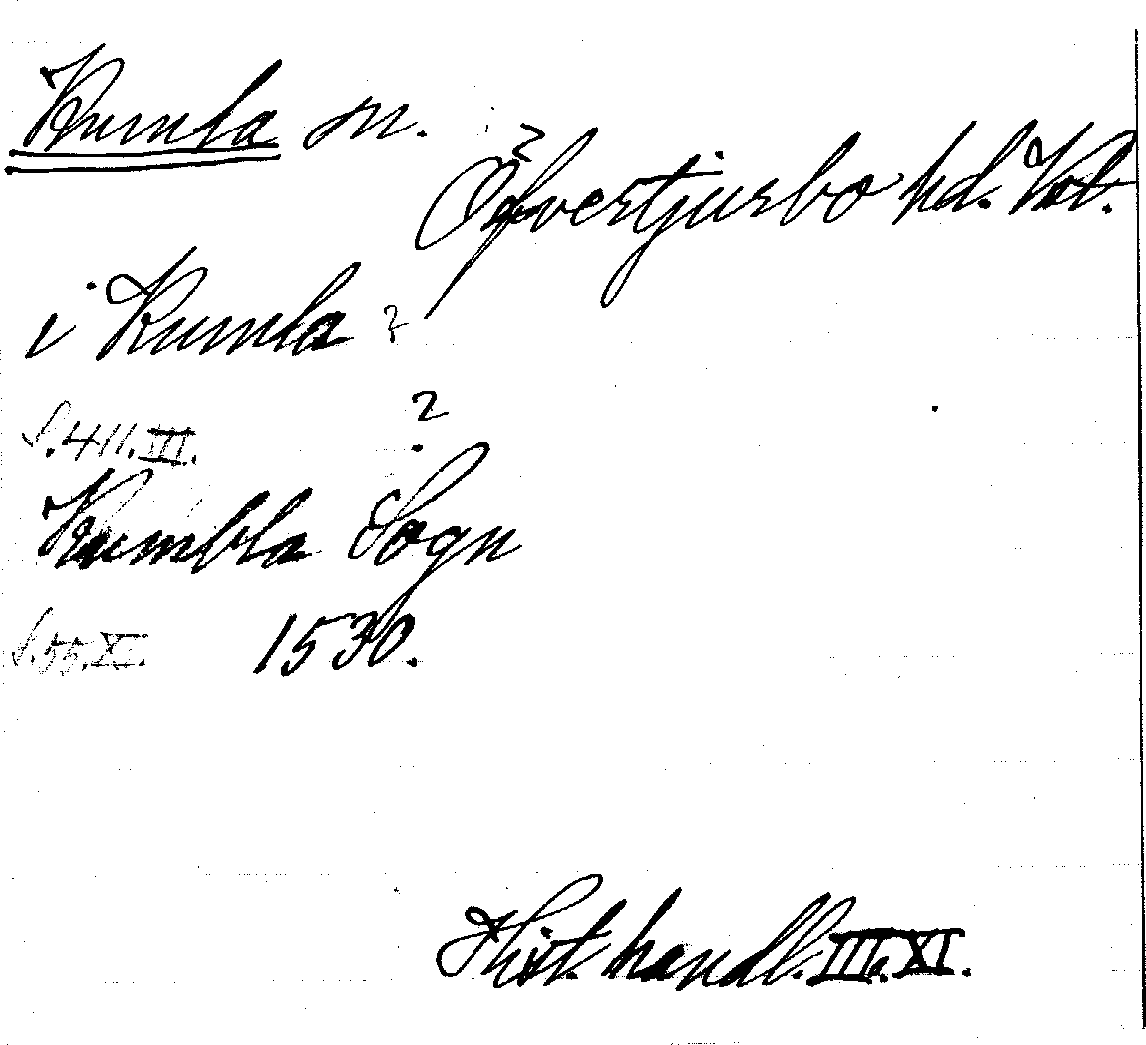 Kumla sn.
Öfvertjurbo hd. Vstm.
i Kumla ?
S. 411. III.
?
Kumbla Sogn
S. 55. XI. 1530.
Hist. handl. III. XI.